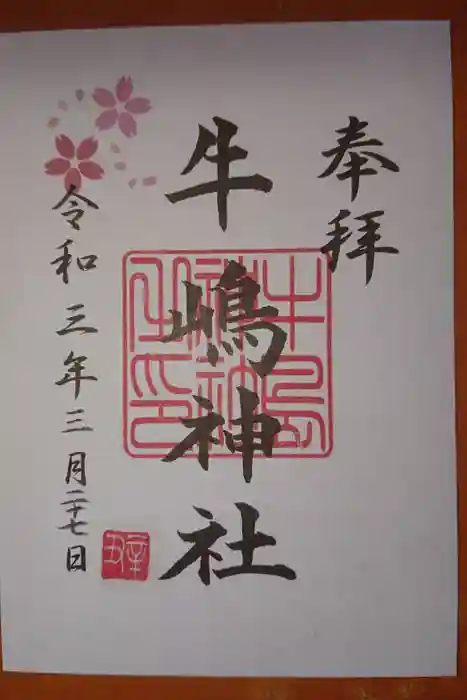 奉拝
牛嶋神社
令和三年三月二十七日
辛丑